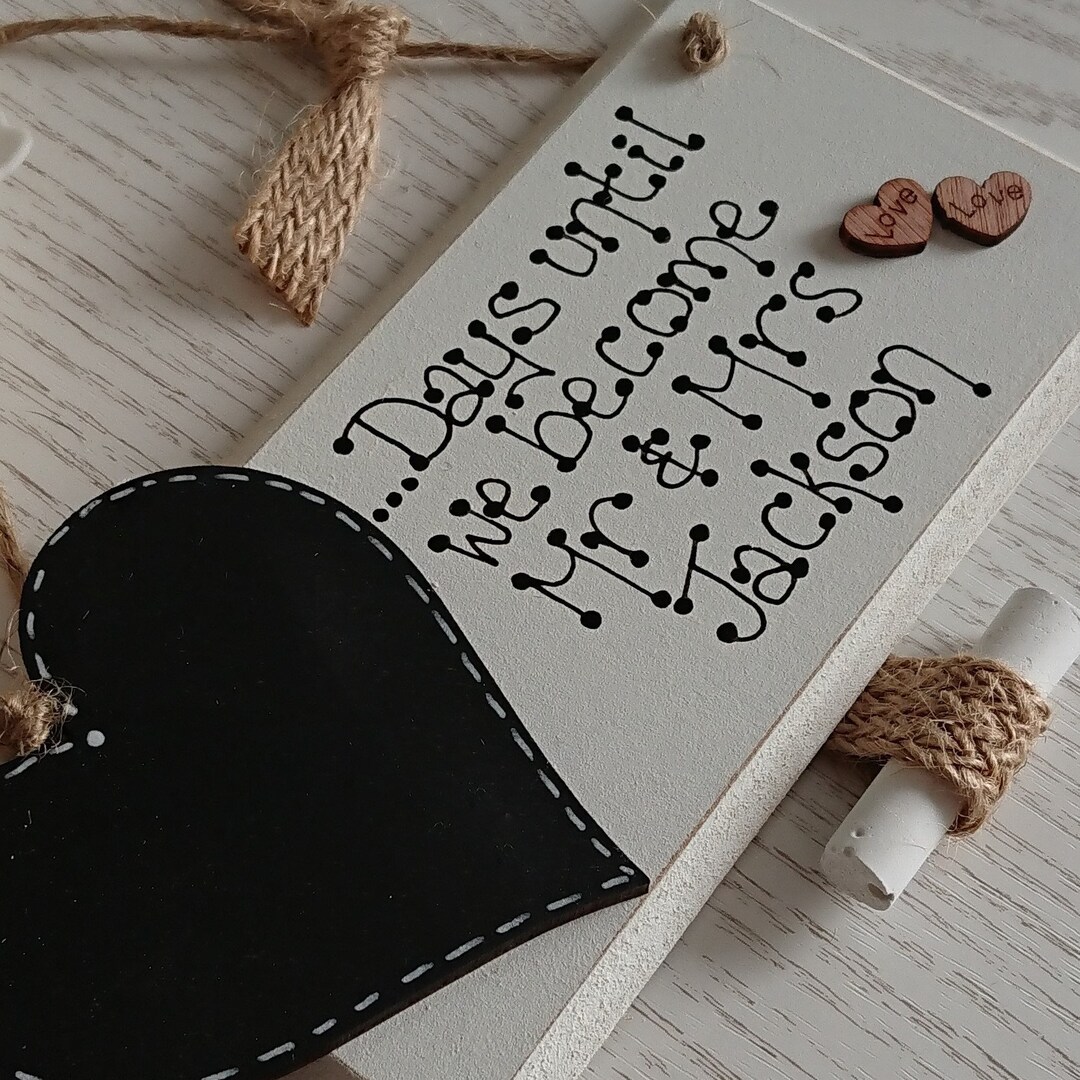 ....Days until
we become
Mr & Mrs
Jackson
Love
Love